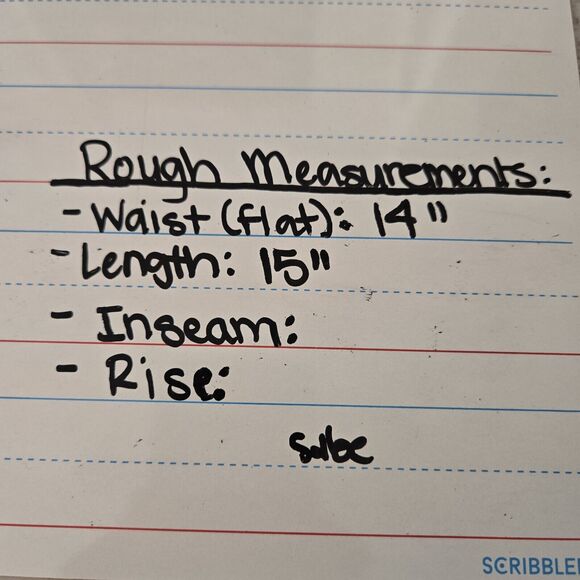 Rough Measurements:
- Waist (flat): 14"
- Length: 15"
- Inseam:
- Rise: